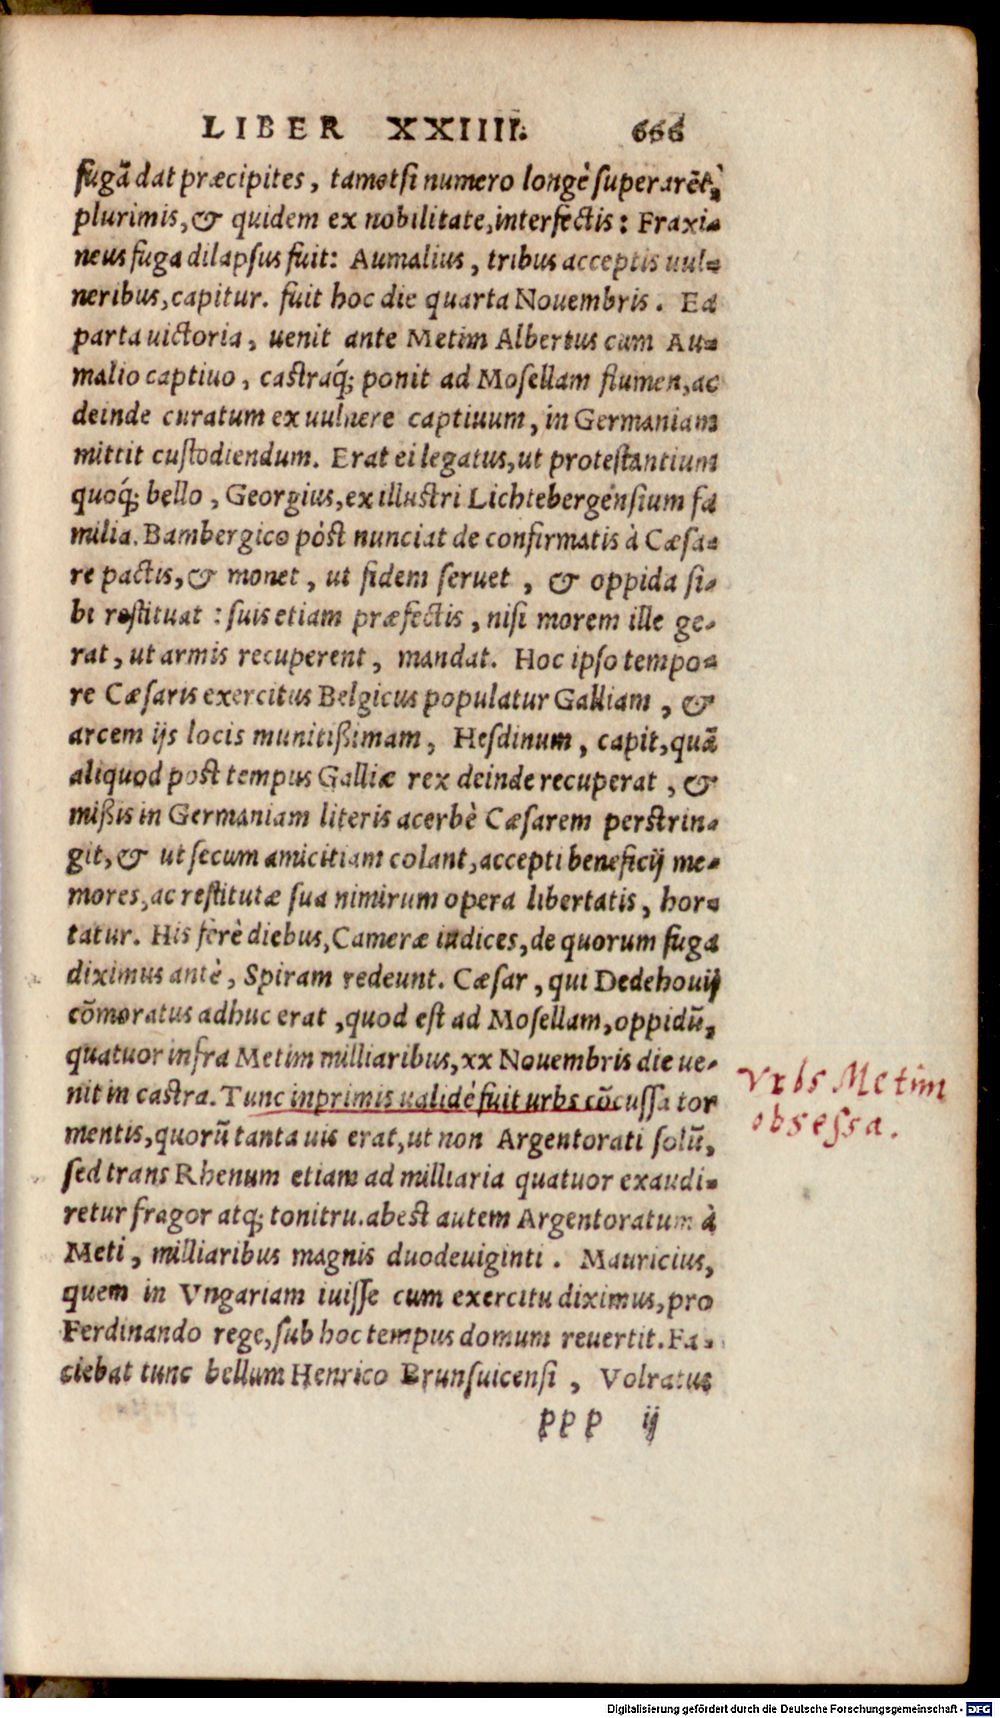 LIBER XXIIII. 666
fugã dat præcipites, tametsi numero longè superarẽt,
plurimis, & quidem ex nobilitate, interfectis: Fraxi-
neus fuga dilapsus fuit: Aumalius, tribus acceptis uul-
neribus, capitur. fuit hoc die quarta Nouembris. Ea
parta uictoria, uenit ante Metim Albertus cum Au-
malio captiuo, castraq́; ponit ad Mosellam flumen, ac
deinde curatum ex uulnere captiuum, in Germaniam
mittit custodiendum. Erat ei legatus, ut protestantium
quoq́; bello, Georgius, ex illustri Lichtebergensium fa
milia. Bambergico pòst nunciat de confirmatis à Cæsa-
re pactis, & monet, ut fidem seruet, & oppida si-
bi restituat: suis etiam præfectis, nisi morem ille ge-
rat, ut armis recuperent, mandat. Hoc ipso tempo-
re Cæsaris exercitus Belgicus populatur Galliam, &
arcem ijs locis munitißimam, Hesdinum, capit, quã
aliquod post tempus Galliæ rex deinde recuperat, &
mißis in Germaniam literis acerbè Cæsarem perstrin-
git, & ut secum amicitiam colant, accepti beneficij me-
mores, ac restitutæ sua nimirum opera libertatis, hor-
tatur. His ferè diebus, Cameræ iudices, de quorum fuga
diximus antè, Spiram redeunt. Cæsar, qui Dedehouij
cõmoratus adhuc erat, quod est ad Mosellam, oppidũ,
quatuor infra Metim milliaribus, xx Nouembris die ue-
nit in castra. Tunc inprimis ualidè fuit urbs cõcussa tor
mentis, quorũ tanta uis erat, ut non Argentorati solũ,
sed trans Rhenum etiam ad milliaria quatuor exaudi-
retur fragor atq; tonitru. abest autem Argentoratum à
Meti, milliaribus magnis duodeuiginti. Mauricius,
quem in Vngariam iuisse cum exercitu diximus, pro
Ferdinando rege, sub hoc tempus domum reuertit. Fa-
ciebat tunc bellum Henrico Brunsuicensi, Volratus
ppp ij
Vrbs Metim
obsessa.
Digitalisierung gefördert durch die Deutsche Forschungsgemeinschaft - DFG